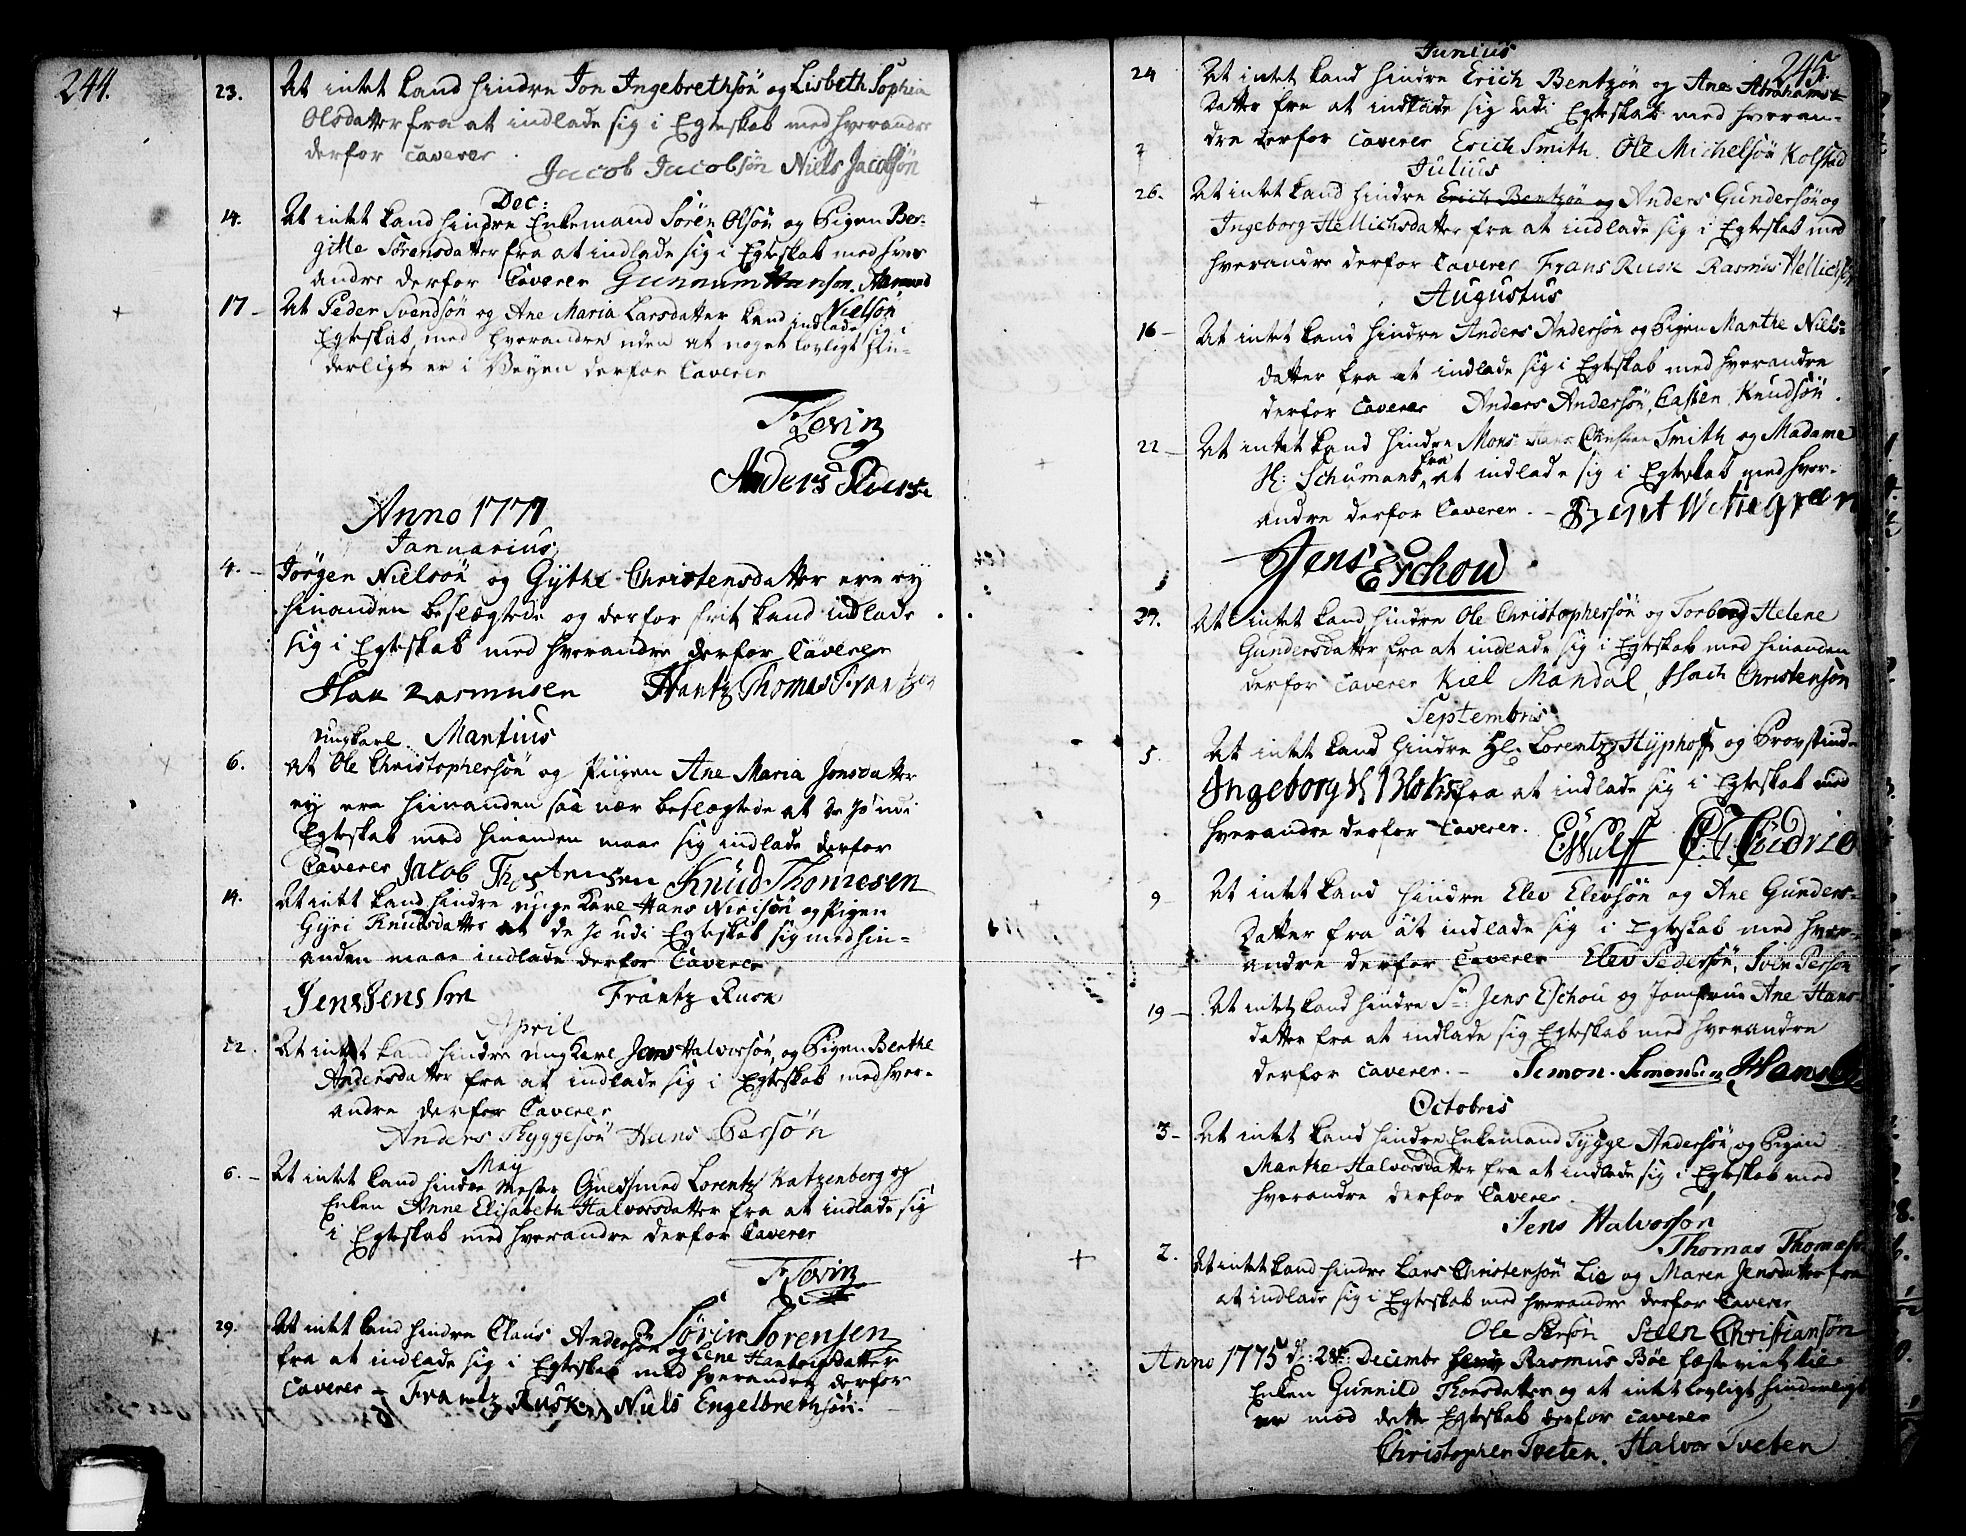 244.
23. At intet kand hindre Jon Ingebrethsön og Lisbeth Sophia
Olsdatter fra at indlade sig i Egteskab med hverandre
derfor Caverer
Jacob Jacobsön Niels Jacobsön
Dec:
14. At intet kand hindre Enkemand Sören Olsön og Pigen Ber-
gitte Sörensdatter fra at indlade sig i Egteskab med hver
andre derfor Caverer Gunnum Hansön. Aamund
Nielsön
17 - At Peder Svendsön og Ane Maria Larsdatter kand indlade sig i
Egteskab, med hverandre uden at noget lovligt hin-
derligt er i Veyen derfor Caverer
F Lovin
Anders Siversen
Anno 1771
Januarius
4. - Jörgen Nielsön og Gythe Christensdatter ere ey
hinanden beslægtede og derfor frit kand indlade
sig i Egteskab med hverandre derfor Caverer
Isak Rasmusen Hantz Thomas Frantzen
ungkarl Martius
6. at Ole Christophersön og Piigen Ane Maria Jonsdatter
ey ere hinanden saa nær beslægtede at de jo udi
Egteskab med hinanden maae sig indlade derfor
Caverer Jacob Thostensen Knud Thomesen
14. At intet kand hindre unge Karl Hans Nielsön og Pigen
Gyri Knudsdatter at de jo udi Egteskab sig med hin-
anden maae indlade derfor Caverer
Jens Jensen Frantz Rusk
April
22. At intet kand hindre ung Karl Jens Halvorsön, og Pigen Berthe
Andersdatter fra at indlade sig i Egteskab med hver-
andre derfor Caverer
Anders Thyggesön Hans Persön
May
6. - At intet kand hindre Mester Guldsmed Lorentz Katzenberg og
Enken Anne Elisabeth Halvorsdatter fra at indlade sig
i Egteskab med hverandre derfor Caverer
F Lovin
Sören Sorensen
29. At intet kand hindre Claus Andersön og Lene
fra at indlade sig i Egteskab med hverandre derfor
Caverer - Frantz Rusk, Niels Engelbrethsön.
245.
Junius
24 At intet kand hindre Erich Bentzön og Ane Abrahams-
Datter fra at indlade sig udi Egteskab med hveran-
dre derfor Caverer Erich Smith. Ole Michelsön Kolstad
Julius
26. At intet kand hindre Erich Bentzön og Anders Gundersön og
Ingeborg Hellichsdatter fra at indlade sig i Egteskab med
hverandre derfor Caverer Frans Rusk Rasmus Hellichsön
Augustus
16 - At intet kand hindre Anders Andersön og Pigen Marthe Niels-
datter fra at indlade sig i Egteskab med hverandre
derfor Caverer Anders Andersön, Casten Knudsön.
22 - At intet kand hindre Mons: Hans Christian Smith og Madame
Sl: Schumans fra at indlade sig i Egteskab med hver-
andre derfor Caverer. - Bent Wettegreen
Jens Eschou
27. At intet kand hindre Ole Christophersön og Torborg Helene
Gundersdatter fra at indlade sig i Egteskab med hinanden
derfor Caverer Kiel Mandal, Isach Christensön
Septembris
5. At intet kand hindre Hr. Lorentz Hyphoff og Provstinde
Ingeborg Sl Bloks fra at indlade sig i Egteskab med
hverandre derfor Caverer. EWulff
9 At intet kand hindre Elev Elevsön og Ane Gunders-
Datter fra at indlade sig i Egteskab med hver-
andre derfor Caverer Elev Pedersön, Sven Persön
19 - At intet kand hindre Sr: Jens Eschou og Jomfrue Ane Hans-
datter fra at indlade sig Egteskab med hverandre
derfor Caverer. - Simon Simonsen
Octobris
3 - At intet kand hindre Enkemand Tygge Andersön og Pigen
Marthe Halvorsdatter fra at indlade sig i Egteskab med
hverandre derfor Caverer.
Jens Halvorsön
Thomas Thomasen
2. At intet kand hindre Lars Christensön Lie og Maren Jensdatter fra
at indlade sig i Egteskab med hverandre derfor Caverer
Ole Persön Steen Christiansön
Anno 1775 d: 28de: Decembr Rasmus Böe fæstemöt til
Enken Gunnild Thorsdatter og at intet lovligt hinderligt
er mod dette Egteskab derfor Caverer
Christopher Tveten. Halvor Tveten